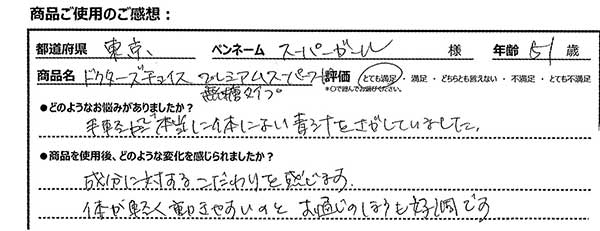 商品ご使用のご感想：
都道府県 東京 ペンネーム スーパーガール 様 年齢 51 歳
商品名 ドクターズチョイス プレミアムスーパーフード 評価 とても満足 ・ 満足 ・ どちらとも言えない ・ 不満足 ・ とても不満足
無糖タイプ *○で囲んでお選びください。
●どのようなお悩みがありましたか？
手軽で本当に体によい青汁をさがしていました。
●商品を使用後、どのような変化を感じられましたか？
成分に対するこだわりを感じます。
体が軽く動きやすいのと お通じのほうも好調です